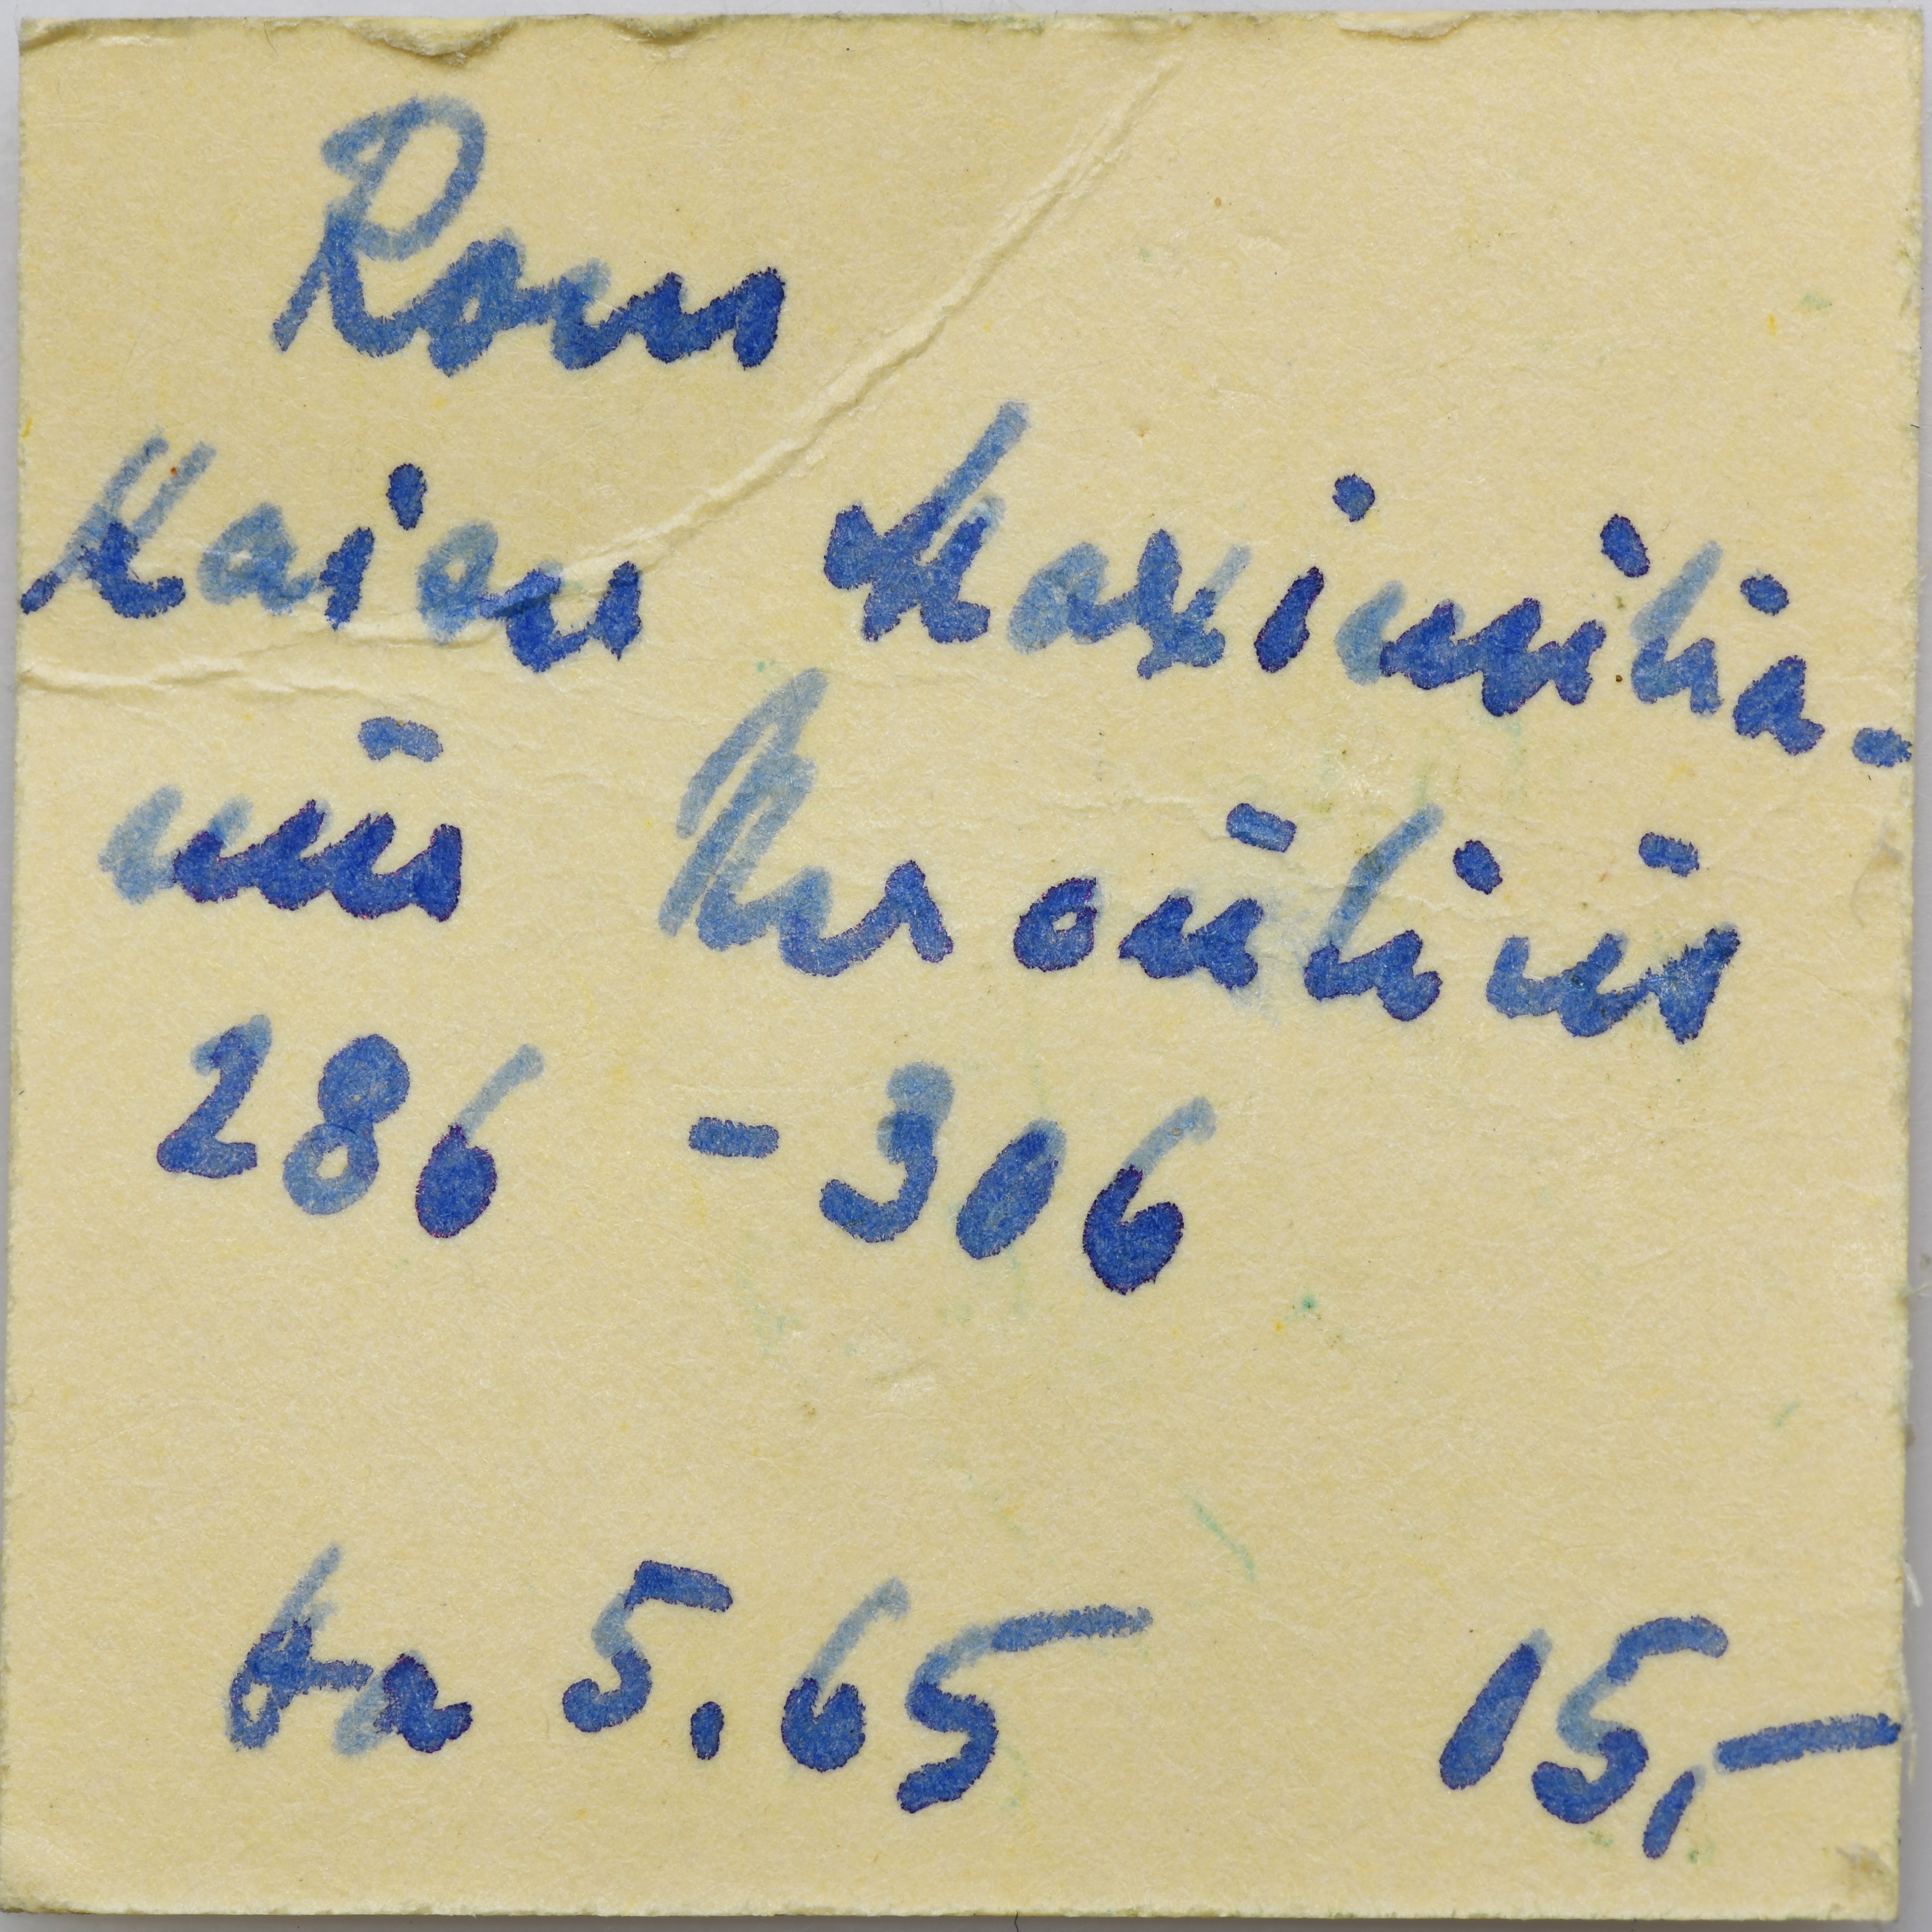 Rom
Kaiser Maximilia-
nus Herculius
286 - 306
5.65 15,-